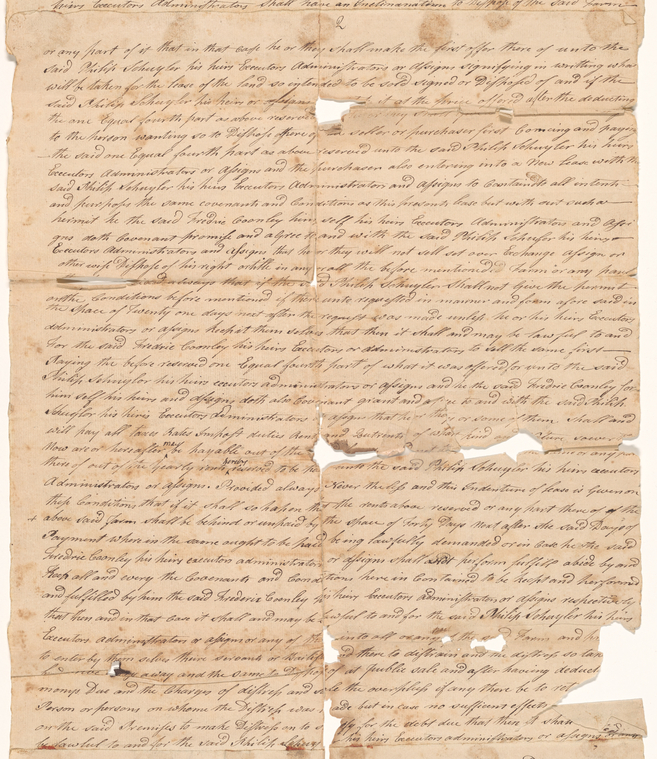 heirs Executors Administrators Shall have an Inclination to Dispose of the Said Farm
2
or any part of it that in that case he or they Shall make the first offer there of unto the
Said Philip Schuyler his heirs Executors Administrators or Assigns signifying in writing what
will be taken for the lease of the land so intended to be sold signed or Disposed of and if the
said Philip Schuyler his heirs or assigns it at the three offered after the deducting
the one Equal fourth part as above reserved
to the person wanting so to Dispose there of seller or purchaser first Coming and paying
the said one Equal fourth part as above reserved unto the said Philip Schuyler his heirs
Executors Administrators or Assigns and the purchaser also entering into a New lease with the
said Philip Schuyler his heirs Executors Administrators and Assigns to all intents
and purposes the same covenants and Conditions as this present lease but with out such a
permit he the said Fredric Coonley him self his heirs Executors Administrators and Assi
gns doth Covenant promise and agree to and with the said Philip Schuyler his heirs
Executors Administrators and Assigns that he or they will not sell set over Exchange assign or
other wise Dispose of his right or title in any the before mentioned Farm or any part
always that if the said Philip Schuyler Shall not give the permit
on the Conditions before mentioned if the unto requested in manner and form afore said in
the Space of Twenty one days next after the request was made unless he or his heirs Executors
administrators or assigns that then it Shall and may be lawful to and
For the said Fredric Coonley his heirs Executors or administrators to sell the same first
Paying the before reserved one Equal fourth part of what it was offered for unto the said
Philip Schuyler his heirs executors administrators or assigns and he the said Fredric Coonley for
him self his heirs and Assigns doth also Covenant grant and agree to and with the said Philip
Schuyler his heirs Executors administrators assigns that he or they or some of them Shall and
will pay all taxes Rates Impost duties
Now are or hereafter may be payable out of the
there of out of the yearly rent hereby reserved to the unto the said Philip Schuyler his heirs executors
Administrators or Assigns. Provided always Never the less and this Indenture of lease is Given on
this Condition that if it shall so happen that the rent above reserved or any part there of of the
above said farm shall be behind or unpaid by the space of Forty Days Next after the Said Days of
Payment when in the same ought to be paid being lawfully demanded or in case he the said
Fredric Coonley his heirs executors administrators or assigns shall not perform fulfill abide by and
Keep all and every the Covenants and Conditions here in Contained to be kept and performed
and fulfilled by him the said Frederic Coonley his heirs Executors administrators or assigns respectively
that then and in that case it shall and may be lawful to and for the said Philip Schuyler his heirs
Executors administrators or assigns or any of the into all or any of the Said Farm and
to enter by them selves there servants or Bailiffs and there to distrain and the distress so tak
away and the same to Dispose of at public sale and after having deduct
moneys Due and the Charges of distress and sale the overplus if any there be to ret
Person or persons on whome the Distress was made but in case no sufficient effects
on the said Premises to make Distress on to for the debt due that then it shall
be lawful to and for the said Philip Schuyler his heirs Executors administrators or assigns